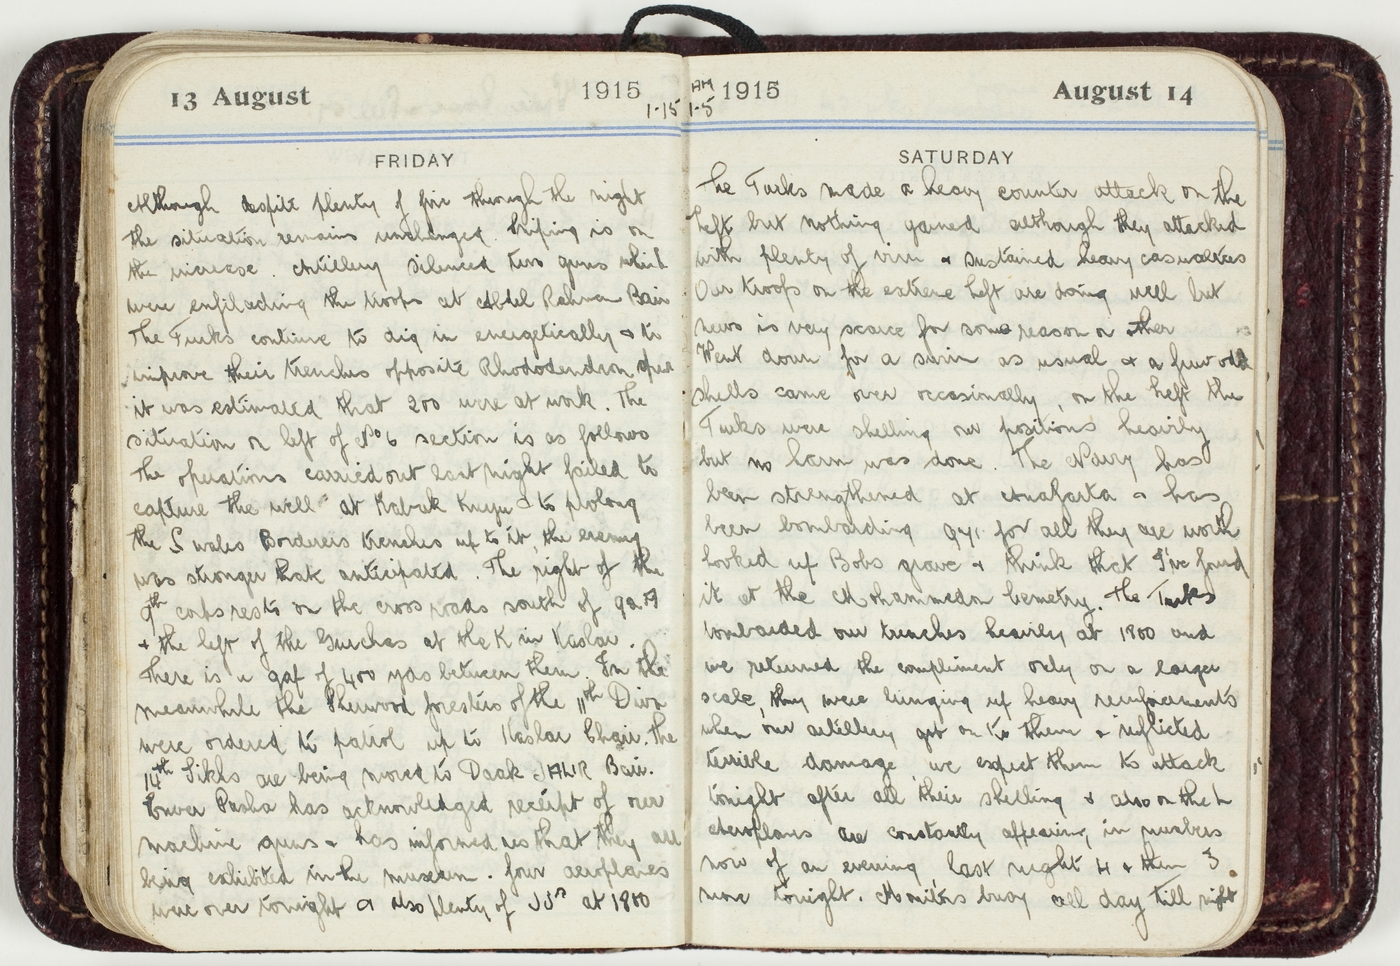 13 August 1915
1-15
FRIDAY
Although despite plenty of fire through the night
the situation remains unchanged. Sniping is on
the increase. Artillery silenced two guns which
were enfilading the troops at Abdel Rahman Bair
The Turks continue to dig in energetically & to
improve their trenches opposite Rhododendron spur
it was estimated that 200 were at work. The
situation on left of No 6 section is as follows
The operations carried out last night failed to
capture the well at Kabak Kuyu & to prolong
the S Wales Borderers trenches up to it, the enemy
was stronger that anticipated. The right of the
9th corps rests on the cross roads south of 92
& the left of the Gurchas at the K in Kaslar.
There is a gap of 400 yds between them. In the
meanwhile the Sherwood foresters of the 11th Divn
were ordered to patrol up to Kaslar Chair. The
14th Sikhs are being moved to Daak JALIR Bair.
Enver Pasha has acknowledged receipt of our
machine guns & has informed us that they are
being exhibited in the museum. four aeroplanes
were over tonight & also plenty of at 1800
AM 1915 August 14
1-5
SATURDAY
The Turks made a heavy counter attack on the
left but nothing gained although they attacked
with plenty of vim & sustained heavy casualties
Our troops on the extreme left are doing well but
news is very scarce for some reason or other
Went down for a swim as usual & a few odd
shells came over occasionally, on the left the
Turks were shelling our positions heavily
but no harm was done. The Navy has
been strengthened at Anafarta & has
been bombarding 971 for all they are worth
looked up Bobs grave & think that I've found
it at the Mohammedan Cemetry. The Turks
bombarded our trenches heavily at 1800 and
we returned the compliment only on a larger
scale, they were bringing up heavy reinforcements
when our artillery got on to them & inflicted
terrible damage, we expect them to attack
tonight after all their shelling & also on the L
Aeroplans are constantly appearing, in numbers
now of an evening, last night 4 & then 3
more tonight. Monitors busy all day till night